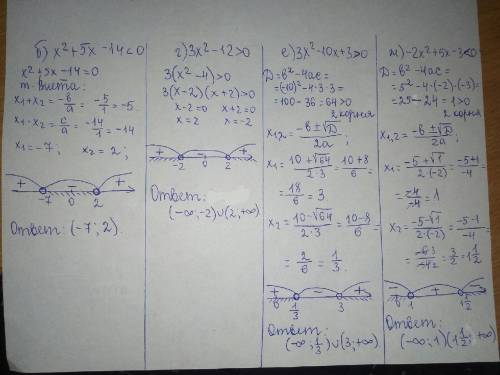 б) x²+5x-14<0
x²+5x-14=0
т. Виета:
x₁+x₂=-b/a=-5/1=-5
x₁·x₂=c/a=-14/1=-14
x₁=-7; x₂=2;
+ - +
-7 0 2
Ответ: (-7; 2).
г) 3x²-12>0
3(x²-4)>0
3(x-2)(x+2)>0
x-2=0 x+2=0
x=2 x=-2
+ - +
-2 0 2
Ответ:
(-∞;-2)∪(2;+∞)
е) 3x²-10x+3>0
D=b²-4ac=
=(-10)²-4·3·3=
=100-36=64>0
2 корня
x₁,₂=(-b±√D)/2a;
x₁=(10+√64)/(2·3)=(10+8)/6=
=18/6=3
x₂=(10-√64)/(2·3)=(10-8)/6=
=2/6=1/3.
+ - +
0 1/3 3
Ответ:
(-∞;1/3)∪(3;+∞)
-2x²+5x-3<0
D=b²-4ac=
=5²-4·(-2)·(-3)=
=25-24=1>0
2 корня
x₁,₂=(-b±√D)/2a;
x₁=(-5+√1)/(2·(-2))=(-5+1)/-4=
=-4/-4=1
x₂=(-5-√1)/(2·(-2))=(-5-1)/-4=
=-6/-4=3/2=1 1/2
- + -
0 1 1 1/2
Ответ:
(-∞;1)(1 1/2;+∞)